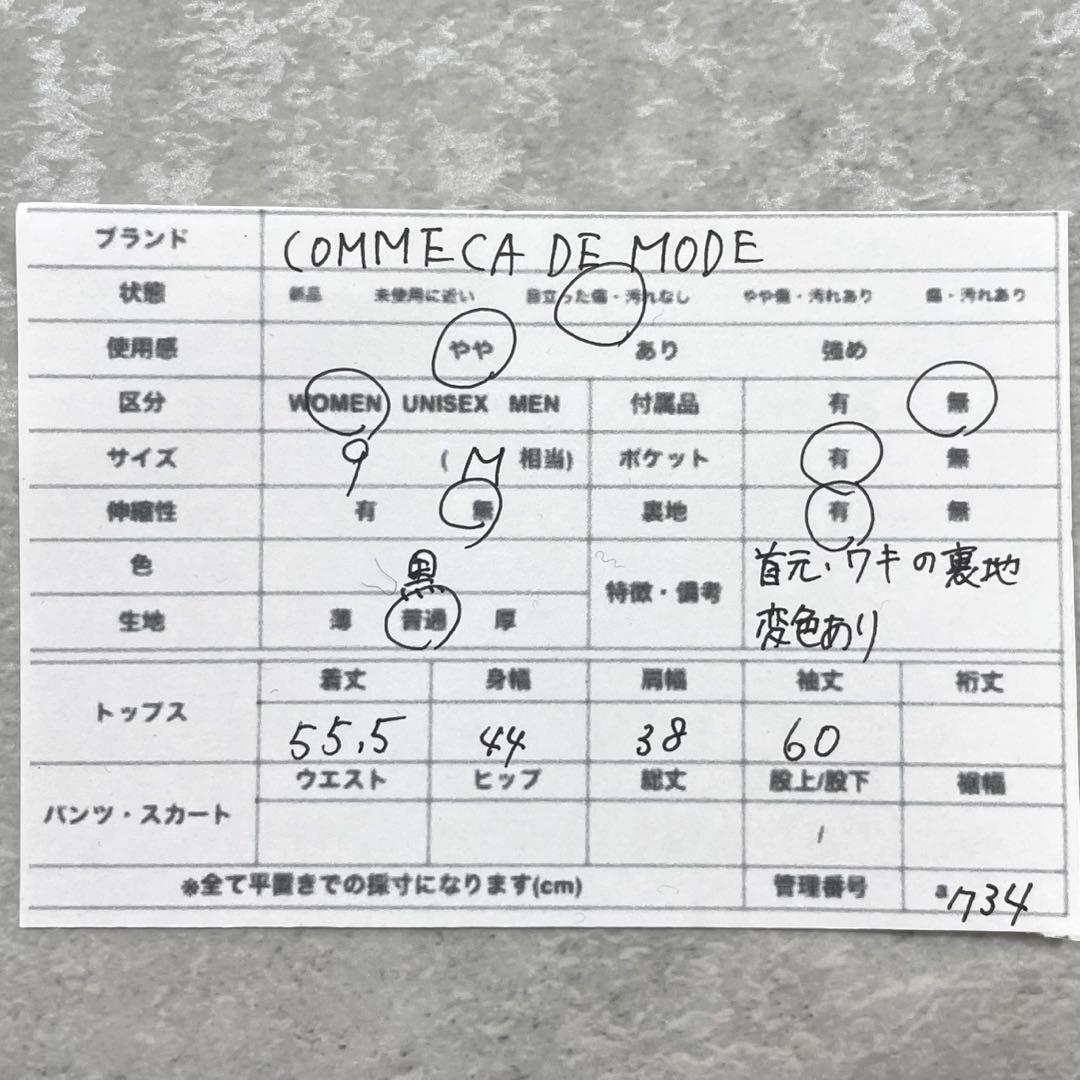 ブランド COMMECA DE MODE
状態 新品 未使用に近い 目立った傷・汚れなし やや傷・汚れあり 傷・汚れあり
使用感 やや あり 強め
区分 WOMEN UNISEX MEN 付属品 有 無
サイズ 9 (M 相当) ポケット 有 無
伸縮性 有 無 裏地 有 無
色 黒 特徴・備考 首元・ワキの裏地
生地 薄 普通 厚 変色あり
トップス 着丈 身幅 肩幅 袖丈 裄丈
55.5 44 38 60
パンツ・スカート ウエスト ヒップ 総丈 股上/股下 裾幅
/
※全て平置きでの採寸になります(cm) 管理番号 a734